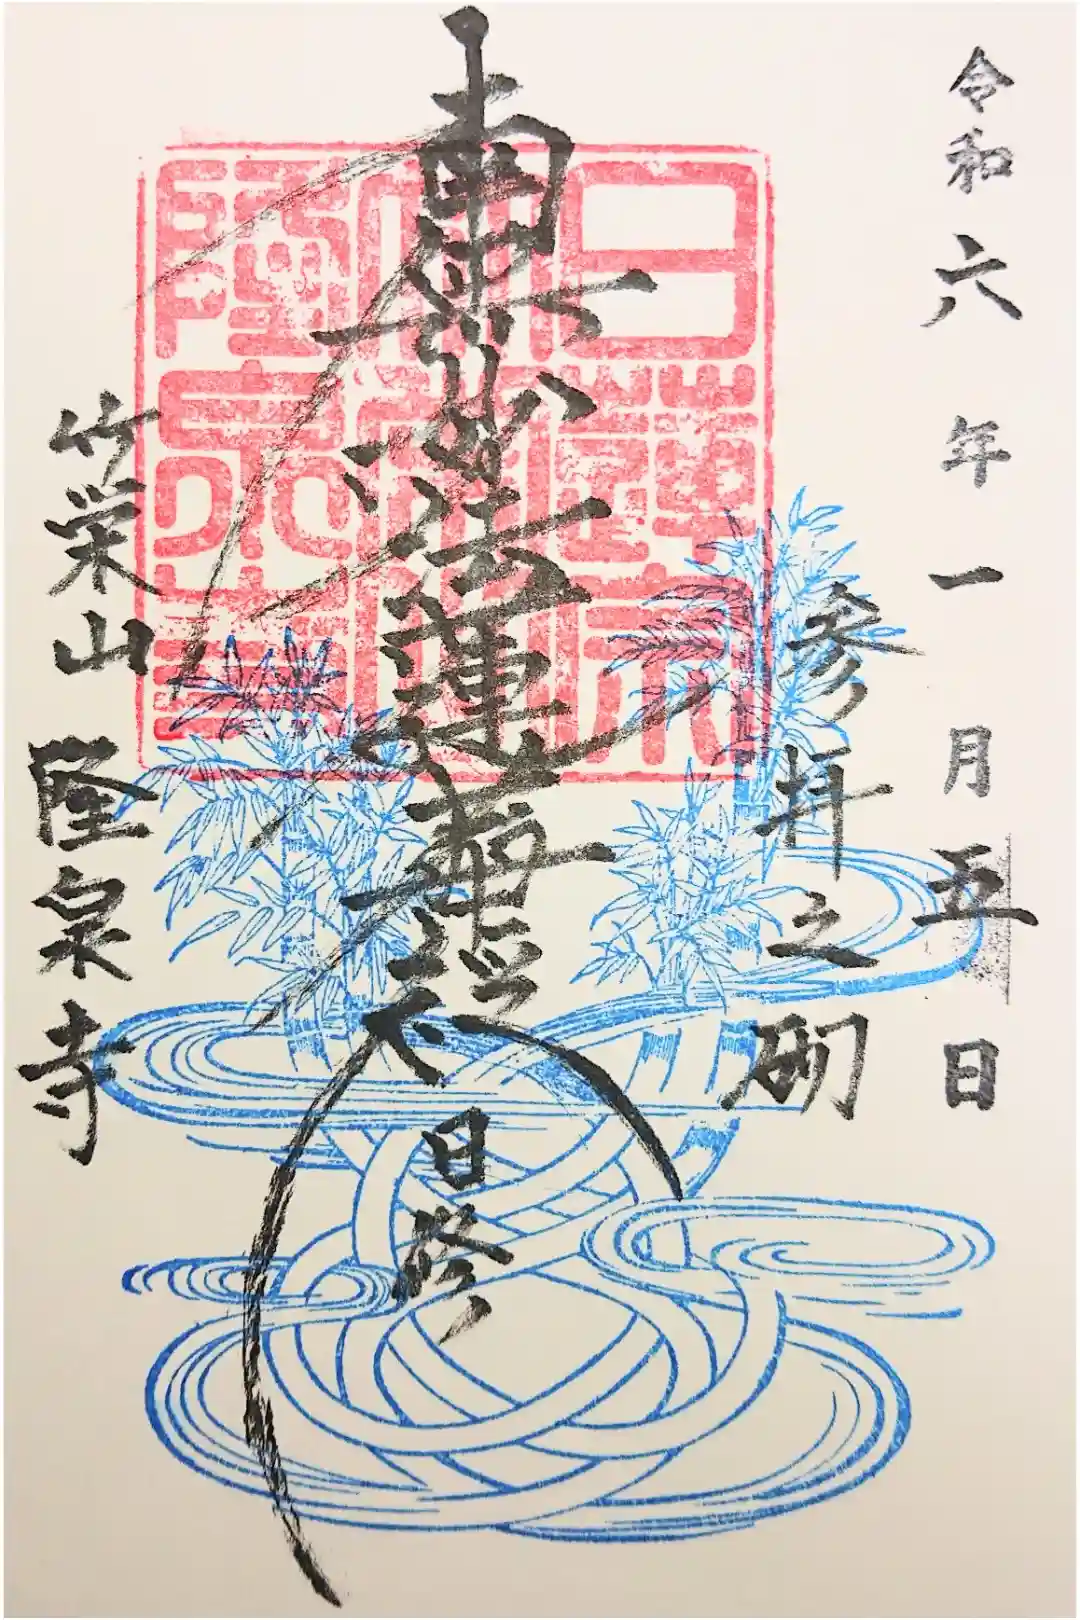 令和六年一月五日
参拝之砌
南無妙法蓮華経
竹栄山 隆泉寺
日蓮宗
隆泉寺